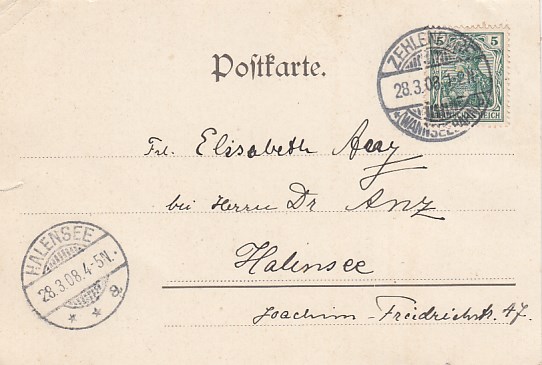 Postkarte.
5
ZEHLENDORF
28.3.08.1-2N.
(WANNSEEBAHN)
DEUTSCHES REICH
Frl. Elisabeth
bei Herrn Dr Anz
Halensee
Joachim-Friedrichstr. 47.
HALENSEE
28.3.08.4-5N.
* * a.